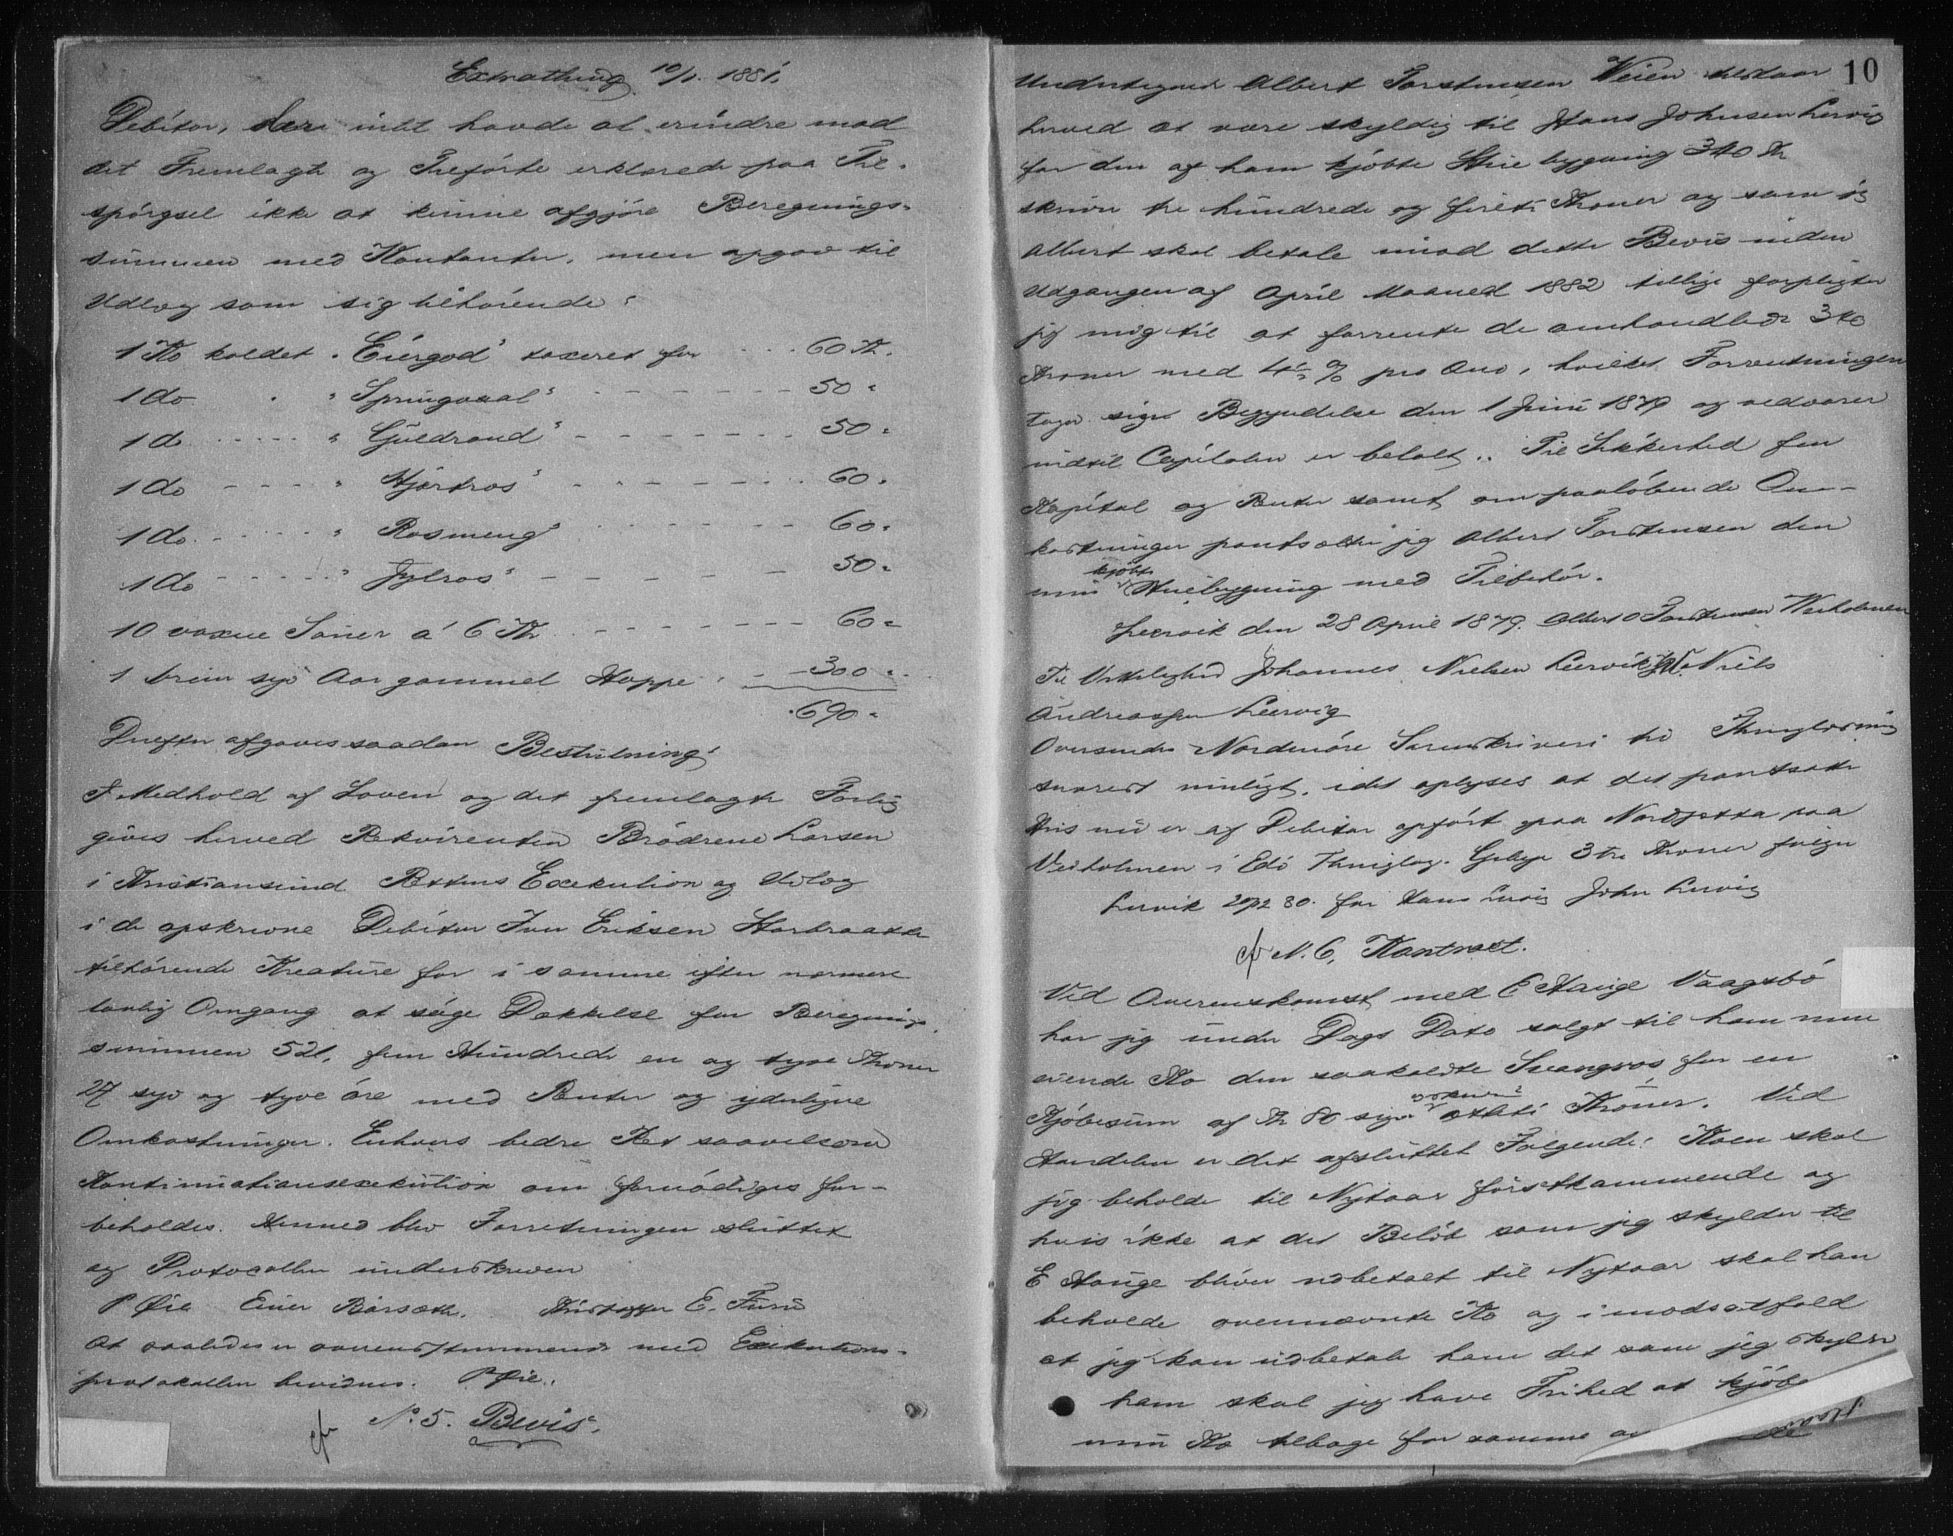 Extrathing 10/1. 1881.
Debitor, der intet havde at erindre mod
det Fremlagte og Treförte erklærede paa Til-
spörgsel ikke at kunne afgjöre Beregnings-
summen med Kontanter, men opgav til
Udlæg som sig tilhörende:
1 Ko kaldet "Eiergod" taxeret for - - - 60 Kr.
1 do - " Springoxal" - - - - - - - 50 "
1 do - - - - " Guldrand" - - - - - - - 50 "
1 do - - - - " Hjertros" - - - - - - - 60 "
1 do - - - - " Rosmeng" - - - - - - - 60 "
1 do - - - - " Fylros" - - - - - - - 50 "
10 voxne Souer á 6 Kr - - - - - - 60 "
1 brun syv Aar gammel Hoppe - - 300 "
690 "
Derefter afgaves saadan Beslutning:
I Medhold af Loven og det fremlagte Forlig
gives herved Rekvirenten Brödrene Larsen
i Kristiansund Rettens Exekution og Udlæg
i de opskrevne Debitor Iver Eriksen
tilhörende Kreature for i samme efter nærmere
lovlig Omgang at söge Dækkelse for Beregnings-
summen 521, fem Hundrede en og tyve Kroner
27 syv og tyve öre med Renter og yderligere
Omkostninger. Enhvers bedre Ret saavelsom
Kontinuationsexekution om fornödiges for-
beholdes. Hermed blev Forretningen sluttet
og Protocollen underskreven
P Öie Einer Bersæth. Kristoffer E. Furu
At saaledes er overensstemmende med Exekutions-
protokollen bevidnes. P Öie.
cfr No 5. Bevis.
10
Undertegnede Albert Torstensen Veien tilstaar
herved at være skyldig til Hans Johnsen Lervig
for den af ham kjöbte Huebygning 340 Kr
skriver tre hundrede og fireti Kroner og som jeg
Albert skal betale imod dette Bevis inden
Udgangen af April Maaned 1882 tillige forpligter
jeg mig til at forrente de omhandlede 340
Kroner med 4½ % pro Ano, hvilket Forrentningen
tager sign Begyndelse den 1 Juni 1879 og vedvarer
indtil Capitalen er betalt. Til Sikkerhed for
Kapital og Renter samt om paalöbende Om-
kostninger pantsætter jeg Albert Torstensen den
min kjöbte Huebygning med Tilbehör.
Leervik den 28 April 1879. Albert Torstensen Veiholmen
Til Vitterlighed Johannes Nielsen Leervik Niels
Andreassen Leervig
Oversendes Nordmöre Sorenskriveri til Thinglæsning
snarest muligt, idet oplyses at det pantsatte
Hus nu er af Debitor opfört paa Nordjetta paa
Veiholmen i Edö Thinglag. Gebyr 3 tre Kroner fölger
Lervik 20/12 80. for Hans Lervig John Lervig
cfr N. 6. Kontract.
Ved Overenskomst med E Hauge Vaagsbö
har jeg under Dags Dato solgt til ham min
eiende Ko den saakaldte Svangros for en
Kjöbesum af Kr 80 siger otteti Kroner. Ved
Handelen er det afsluttet Fölgende: Koen skal
jeg beholde til Nytaar förstkommende og
hvis ikke at det Belöb som jeg skylder til
E Hauge bliver udbetalt til Nytaar skal han
beholde ovennævnte Ko og i modsatfald
at jeg kan udbetale ham det som jeg skylder
ham skal jeg have Frihed at kjöbe
min Ko tilbage for samme